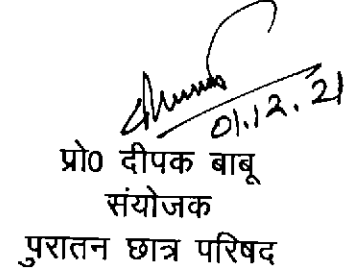 01.12.21
प्रो0 दीपक बाबू
संयोजक
पुरातन छात्र परिषद